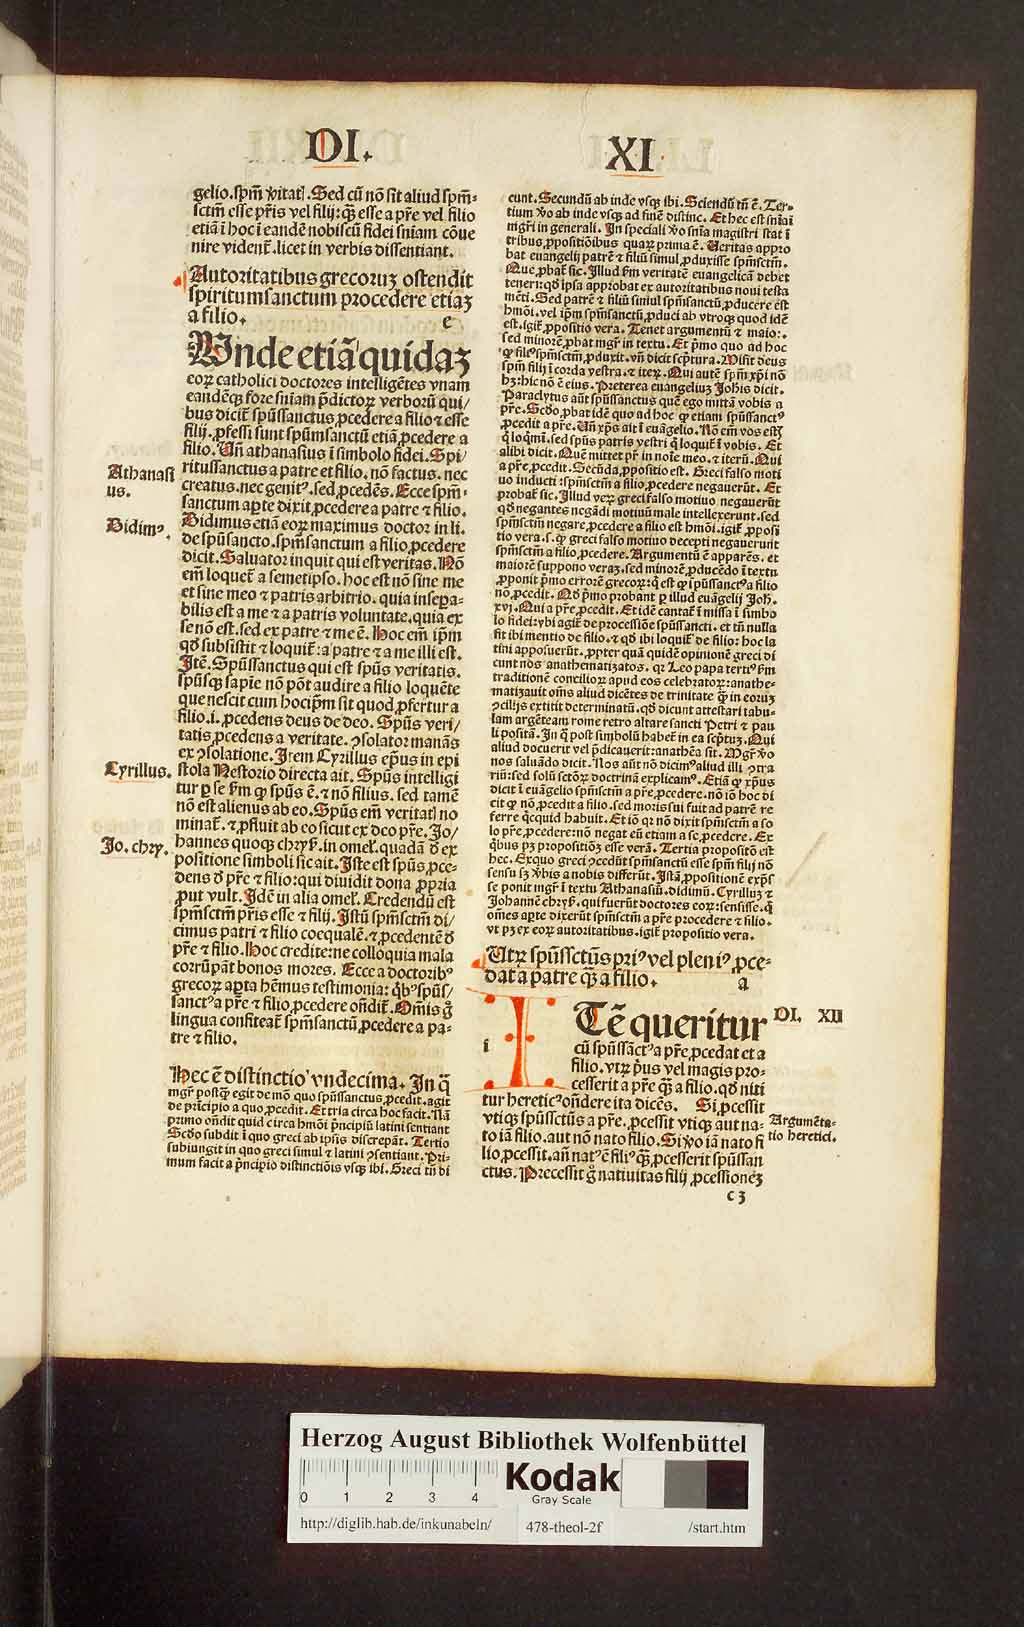 DI.
XI
gelio.spm̃ v̓itatꝭ.Sed cũ nõ sit aliud spm̃⸗
sctm̃ esse pr̃is vel filij:q̃ esse a pr̃e vel filio
etiã ĩ hoc ĩ eandẽ nobiscũ fidei sñiam cõue
nire vident̃.licet in verbis dissentiant.
Autoritatibus grecoruꝫ ostendit
spiritumsanctum procedere etiaꝫ
a filio.
e
Vnde etiã quidaꝫ
eoꝝ catholici doctores intelligẽtes vnam
eandẽqꝫ fore sñiam p̃dictoꝝ verborũ qui/
bus dicit̃ spũssanctus ꝓcedere a filio ⁊ esse
filij.ꝓfessi sunt spũmsanctũ etiã ꝓcedere a
filio.Vñ athanasius ĩ simbolo fidei.Spi/
ritussanctus a patre et filio.nõ factus.nec
creatus.nec genitꝰ.sed ꝓcedẽs.Ecce spm̃⸗
sanctum aꝑte dixit ꝓcedere a patre ⁊ filio.
Didimus etiã eoꝝ maximus doctor in li.
de spũsancto.spm̃sanctum a filio ꝓcedere
dicit.Saluator inquit qui est veritas.Nõ
em̃ loquet̃ a semetipso.hoc est nõ sine me
et sine meo ⁊ patris arbitrio.quia insepa⸗
bilis est a me ⁊ a patris voluntate.quia ex
se nõ est.sed ex patre ⁊ me ẽ.Hoc em̃ ip̃m
qd̓ subsistit ⁊ loquit̃:a patre ⁊ a me illi est.
Itẽ.Spũssanctus qui est spũs veritatis.
spũsqꝫ sapĩe nõ põt audire a filio loquẽte
que nescit cum hocip̃m sit quod ꝓfertur a
filio.i.ꝓcedens deus de deo.Spũs veri/
tatis ꝓcedens a veritate.ꝯsolator manãs
ex ꝯsolatione.Item Cyrillus ep̃us in epi
stola Nestorio directa ait.Spũs intelligi
tur ꝑ se ẜm ꝙ spũs ẽ.⁊ nõ filius.sed tamẽ
nõ est alienus ab eo.Spũs em̃ veritatꝭ no
minat̃.⁊ ꝓfluit ab eo sicut ex deo pr̃e.Jo/
hannes quoqꝫ chryẜ.in omel̃.quadã d̓ ex
positione simboli sic ait.Iste est spũs ꝓce⸗
dens d̓ pr̃e ⁊ filio:qui diuidit dona ꝓpria
ꝓut vult.Idẽ in alia omel̃.Credendũ est
spm̃sctm̃ pr̃is esse ⁊ filij.Istũ spm̃sctm̃ di/
cimus patri ⁊ filio coequalẽ.⁊ ꝓcedentẽ d̓
pr̃e ⁊ filio.Hoc credite:ne colloquia mala
corrũpãt bonos mores.Ecce a doctoribꝰ
grecoꝝ aꝑta hẽmus testimonia:q̃bꝰ spũs/
sanctꝰ a pr̃e ⁊ filio ꝓcedere oñdit̃.Om̃is g̊
lingua confiteat̃ spm̃sanctũ ꝓcedere a pa⸗
tre ⁊ filio.
Hec ẽ distinctio vndecima. In q̃
mgr̃ postqꝫ egit de mõ quo spũssanctus ꝓcedit.agit
de pr̃icipio a quo ꝓcedit.Et tria circa hoc facit.Nã
primo oñdit quid circa hmõi pr̃ncipiũ latini sentiant
Scd̓o subdit ĩ quo greci ab ipsis discrepãt.Tertio
subiungit in quo greci simul ⁊ latini ꝯsentiant.Pri⸗
mum facit a pr̃ncipio distinctiõis vsqꝫ ibi.Greci tñ di
Athanasi
us.
Didimꝰ.
Cyrillus.
Jo.chry.
cunt.Secundũ ab inde vsqꝫ ibi.Sciendũ tñ ẽ.Ter⸗
tium v̓o ab inde vsqꝫ ad finẽ distinc.Et hec est sñia ĩ
mgr̃i in generali.In speciali v̓o sñia magistri stat ĩ
tribus ꝓpositiõibus quaꝝ prima ẽ.Veritas appro
bat euangelij patrẽ ⁊ filiũ simul ꝓduxisse spm̃sctm̃.
Que ꝓbat̃ sic.Illud ẜm veritatẽ euangelicã debet
teneri:qd̓ ipsa approbat ex autoritatibus noui testa
mẽti.Sed patrẽ ⁊ filiũ simul spm̃sanctũ ꝓducere est
hmõi.vel ip̃m spm̃sanctũ ꝓduci ab vtroqꝫ quod idẽ
est.igit̃ ꝓpositio vera.Tenet argumentũ ⁊ maior.
sed minorẽ ꝓbat mgr̃ in textu.Et p̃mo quo ad hoc
ꝙ filiꝰ spm̃sctm̃ ꝓduxit.vñ dicit scp̃tura.Misit deus
spm̃ filij ĩ corda vestra.⁊ iteꝝ.Qui autẽ spm̃ xp̃i nõ
hꝫ:hic nõ ẽ eius.Preterea euangeliuꝫ Joh̃is dicit.
Paraclytus aũt spũssanctus quẽ ego mittã vobis a
pr̃e.Scd̓o ꝓbat idẽ quo ad hoc ꝙ etiam spũssanctꝰ
ꝓcedit a pr̃e.Vñ xp̃s ait ĩ euãgelio.Nõ em̃ vos estꝭ
q̇ loq̃mĩ.sed spũs patris vestri q̇ loquit̃ ĩ vobis.Et
alibi dicit.Quẽ mittet pr̃ in noĩe meo.⁊ iteꝝ.Qui
a pr̃e ꝓcedit.Secũda ꝓpositio est.Greci falso moti
uo inducti:spm̃sctm̃ a filio ꝓcedere negauerũt.Et
ꝓbat̃ sic.Illud veꝝ greci falso motiuo negauerũt
qd̓ negantes negãdi motiuũ male intellexerunt.sed
spm̃sctm̃ negare ꝓcedere a filio est hmõi.igit̃ ꝓposi
tio vera.s.ꝙ greci falso motiuo decepti negauerunt
spm̃sctm̃ a filio ꝓcedere.Argumentũ ẽ apparẽs.et
maiorẽ suppono veraꝫ.sed minorẽ ꝓducẽdo ĩ textu
ꝓponit p̃mo errorẽ grecoꝝ:q̇ est ꝙ spũssanctꝰ a filio
nõ ꝓcedit.Qd̓ p̃mo probant ꝑ illud euãgelij Joh.
xvj.Qui a pr̃e ꝓcedit.Et idẽ cantat̃ ĩ missa ĩ simbo
lo fidei:vbi agit̃ de processiõe spũssancti.et tñ nulla
fit ibi mentio de filio.⁊ qd̓ ibi loquit̃ de filio:hoc la
tini apposuerũt.ꝓpter quã quidẽ opinionẽ greci di
cunt nos anathematizatos.qꝛ Leo papa tertiꝰ ẜm
traditionẽ concilioꝝ apud eos celebratoꝝ:anathe⸗
matizauit om̃is aliud dicẽtes de trinitate q̃ in eoruꝫ
ꝯcilijs extitit determinatũ.qd̓ dicunt attestari tabu⸗
lam argẽteam rome retro altare sancti Petri ⁊ pau
li positã.In q̃ post simbolũ habet̃ in ea scp̃tuꝫ.Qui
aliud docuerit vel p̃dicauerit:anathẽa sit.Mgr̃ v̓o
nos saluãdo dicit.Nos aũt nõ dicimꝰ aliud illi ꝯtra
riũ:sed solũ sctoꝝ doctrinã explicamꝰ.Etiã ꝙ xp̃us
dicit ĩ euãgelio spm̃sctm̃ a pr̃e ꝓcedere.nõ iõ hoc di
cit ꝙ nõ ꝓcedit a filio.sed moris sui fuit ad patrẽ re
ferre q̇cquid habuit.Et iõ qꝛ nõ dixit spm̃sctm̃ a so
lo pr̃e ꝓcedere:nõ negat eũ etiam a se ꝓcedere.Ex
q̇bus pꝫ propositiõꝫ esse verã.Tertia propositõ est
hec.Exquo greci ꝯcedũt spm̃sanctũ esse spm̃ filij nõ
sensu sꝫ v̓bis a nobis differũt.Istã ꝓpositionẽ exp̃s
se ponit mgr̃ ĩ textu Athanasiũ.didimũ.Cyrilluꝫ ⁊
Johannẽ chryẜ.qui fuerũt doctores eoꝝ:sensisse.q̇
om̃es aꝑte dixerũt spm̃sctm̃ a pr̃e procedere ⁊ filio.
vt pꝫ ex eoꝝ autoritatibus.igit̃ propositio vera.
Vtꝝ spũssctũs priꝰ vel pleniꝰ ꝓce⸗
dat a patre q̃ a filio.
a
i
ITẽ queritur
cũ spũssãctꝰ a pr̃e ꝓcedat et a
filio.vtꝝ pr̃us vel magis pro⸗
cesserit a pr̃e q̃ a filio.qd̓ niti
tur hereticꝰ oñdere ita dicẽs. Si ꝓcessit
vtiqꝫ spũssctũs a pr̃e.ꝓcessit vtiqꝫ aut na⸗
to iã filio.aut nõ nato filio.Si v̓o iã nato fi
lio ꝓcessit.añ natꝰ ẽ filiꝰ q̃ ꝓcesserit spũssan
ctus.Precessit g̊ natiuitas filij ꝓcessioneꝫ
c 3
DI. XII
Argumẽta⸗
tio heretici.
Herzog August Bibliothek Wolfenbüttel
0 1 2 3 4
Kodak
Gray Scale
http://diglib.hab.de/inkunabeln/
478-theol-2f
/start.htm